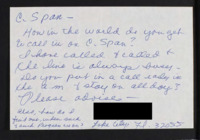 C. Span —
How in the world do you get
to call in on C. Span?
I have called & called &
the line is always busy.
Do you put in a call early in
the a.m. & stay on all day?
Please advise —
Also, how do I
find out when and
Lake City, Fl. 32055